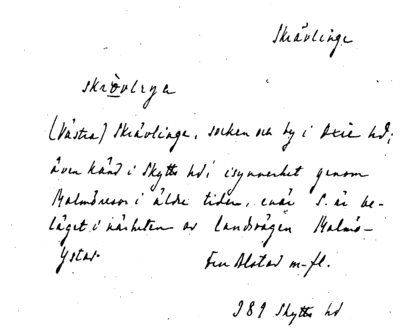 Skrävlinge
skrävlɪŋa
(Västra) Skrävlinge, socken och by i Oxie hd;
även känd i Skytts hd, i synnerhet genom
Malmöresor i äldre tider, enär S. är be-
läget i närheten av landsvägen Malmö-
Ystad. Fru Alstad m-fl.
989 Skytts hd